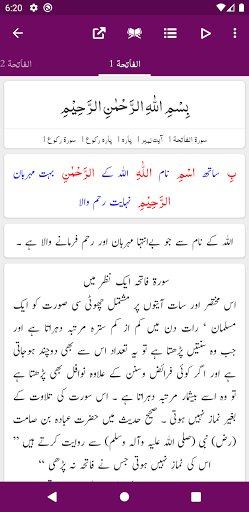 6:20
الفاتحة 1
الفاتحة 2
بِسْمِ اللّٰهِ الرَّحْمٰنِ الرَّحِيْمِ
سورة الفاتحة 1 آیت نمبر 1 پارہ 1 پارہ رکوع 1 سورۃ رکوع 1
بِ ساتھ اسْمِ نام اللّٰهِ اللہ کے الرَّحْمٰنِ بہت مہربان
الرَّحِيْمِ نہایت رحم والا
اللہ کے نام سے جو بےانتہا مہربان اور رحم فرمانے والا ہے ۔
سورۃ فاتحہ ایک نظر میں
اس مختصر اور سات آیتوں پر مشتمل چھوٹی سی صورت کو ایک
مسلمان ، رات دن میں کم از کم سترہ مرتبہ دہراتا ہے اور
جب وہ سنتیں پڑھتا ہے تو یہ تعداد اس سے بھی دوچند ہوجاتی
ہے اور اگر کوئی فرائض وسنن کے علاوہ نوافل بھی پڑھتا ہے
تو وہ اسے بیشمار مرتبہ دہراتا ہے ۔ اس سورت کی تلاوت کے
بغیر نماز نہیں ہوتی ۔ صحیح حدیث میں حضرت عبادہ بن صامت
(رض) نبی (صلی اللہ علیہ وآلہ وسلم) سے روایت کرتے ہیں ”
اس کی نماز نہیں ہوتی جس نے فاتحہ نہ پڑھی “